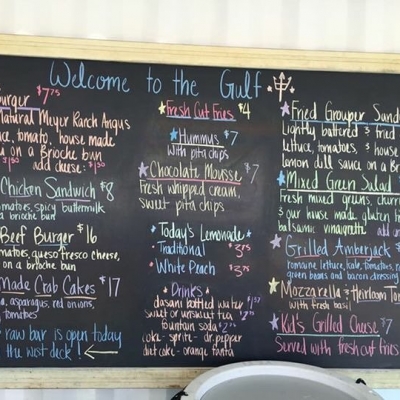 Welcome to the Gulf
Burger $7.75
Natural Meyer Ranch Angus
tomato, house made
on a Brioche bun
add cheese: $1.50
Chicken Sandwich $8
tomatoes, spicy buttermilk
a brioche bun
Beef Burger $16
tomatoes, queso fresco cheese,
on a brioche bun
Made Crab Cakes $17
asparagus, red onions,
tomatoes
raw bar is open today
the west deck! ←
Fresh Cut Fries $4
Hummus $7
with pita chips
Chocolate Mousse $7
Fresh whipped cream,
sweet pita chips
Today's Lemonade
Traditional
White Peach
Drinks
dasani bottled water
sweet or unsweet tea
fountain soda
coke - sprite - dr. pepper
diet coke - orange fanta
Fried Grouper
Lightly battered & fried
lettuce, tomatoes, & house
lemon dill sauce on a
Mixed Green Salad
fresh mixed greens,
& our house made gluten
balsamic vinaigrette
Grilled Amberjack
romaine lettuce, kale, tomatoes,
green beans and bacon dressing
Mozzarella & Heirloom
with fresh basil
Kid's Grilled Cheese $7
Served with fresh cut fries